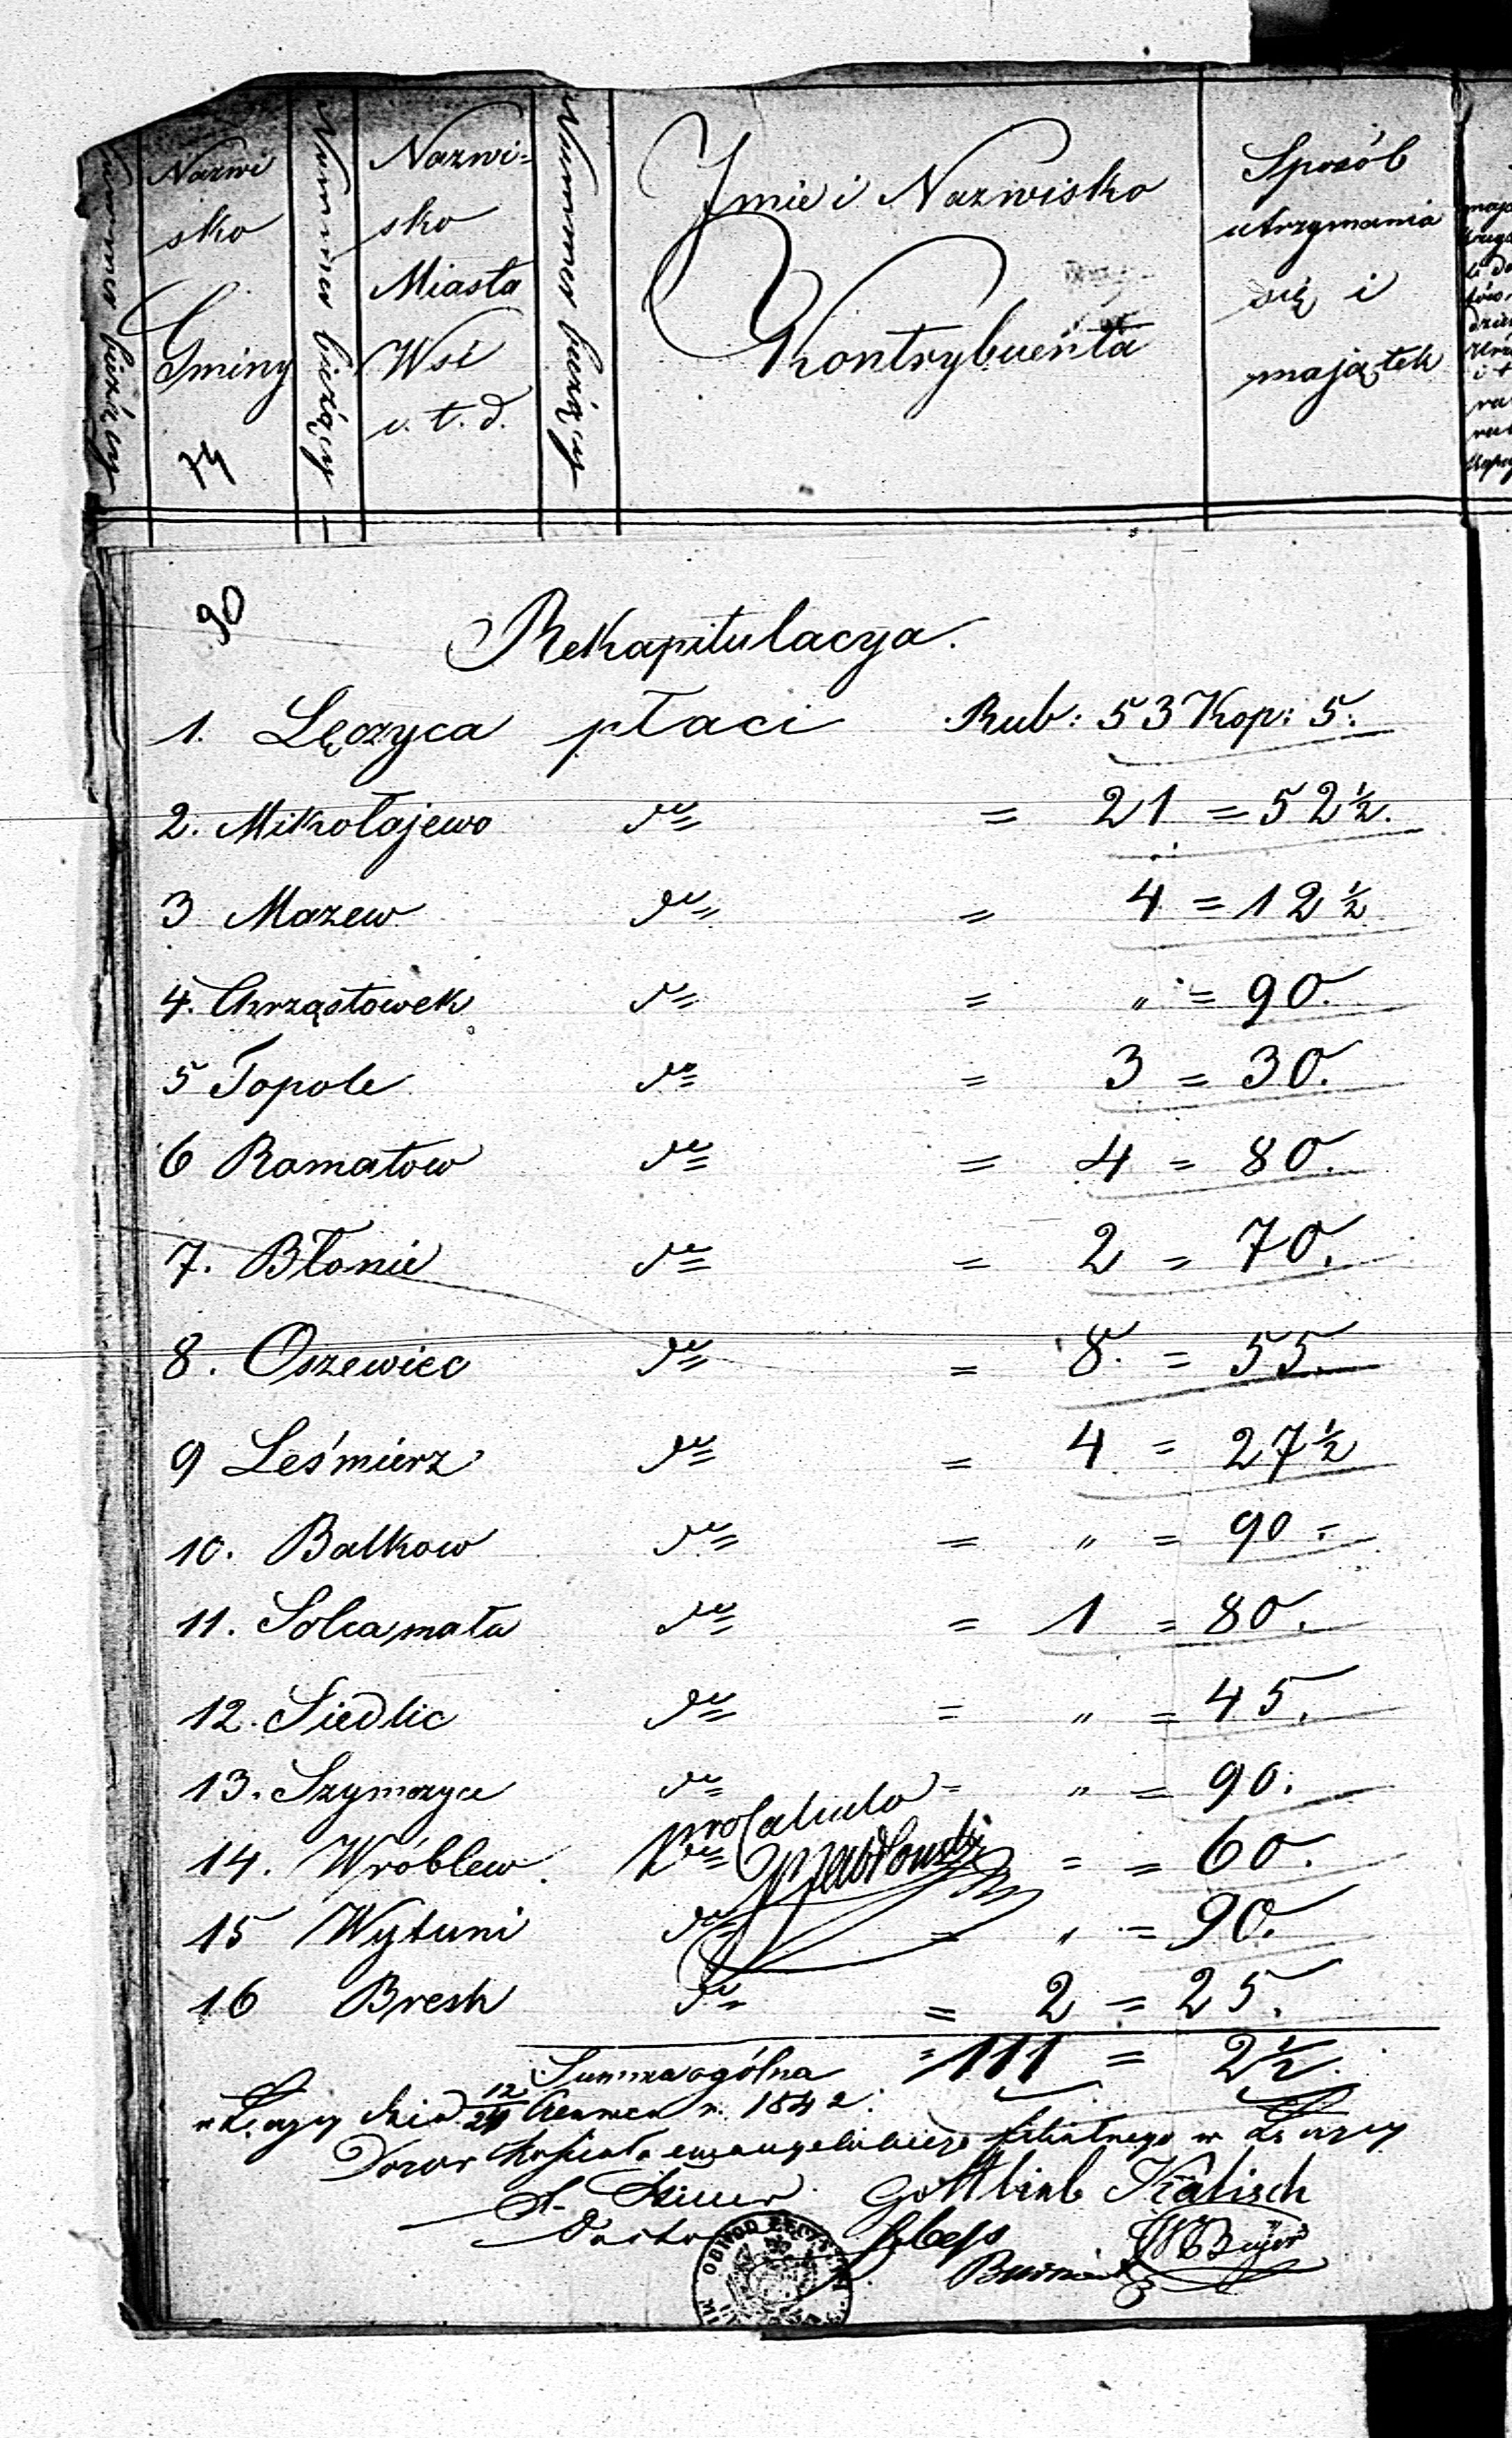 Nazwi
sko
Gminy
74
Nummer bieżący
Nazwi=
sko
Miasta
Wsi
i. t. d.
Nummer bieżący
Imie i Nazwisko
Kontrybuenta
Sposób
utrzymania
się i
majątek
90
Rekapitulacya.
1. Łęczyca płaci Rub: 53 Kop: 5.
2. Mikołajewo do = 21 = 52½.
3 Mazew do = 4 = 12½
4. Chrząstowek do = " = 90.
5 Topole do = 3 = 30.
6 Romatow do = 4 = 80.
7. Błonie do = 2 = 70.
8. Oszewiec do = 8. = 55.
9 Leśmierz do = 4 = 27½
10. Balkow do = " = 90 =
11. Solca mała do = 1 = 80.
12. Siedlic do = " = 45.
13. Szymczyce do = " = 90.
pro Calculo
14. Wróblew. do = = 60.
15 Wytuni do = " = 90.
16 Bresk do = 2 = 25.
Summa ogólna = 111 = 2½.
w Łęczycy dnia 12/24 Czerwca r. 1842.
Dozor Kościoła ewangelickiego filialnego w Łęczycy
Gottlieb Kalisch
OBWOD